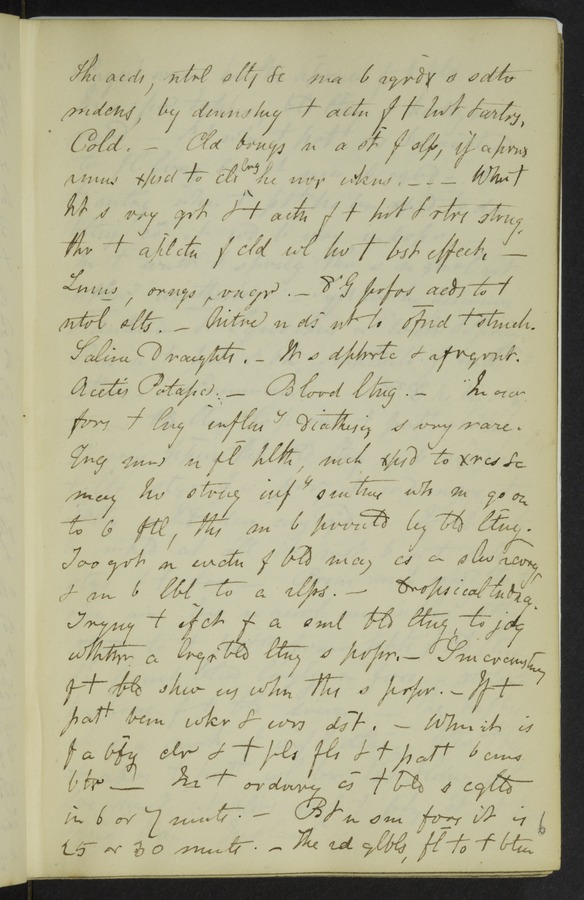 The acds, ntrl slts &c ma b rgrdd s sdtv
mdcns, by dmnshng + actn f + hrt & artrs.
Cold. — Cld brngs n a st f slp, if a prsn
xpsd to cld lng he nvr wkns. — — — Wht
ht s vry grt & + actn f + hrt & rtrs strng,
thn + aplctn f cld wl hv + bst effect. —
Lmns, orngs, vngr. — Dr G prfrs acds to +
ntrl slts. — Nitre n ds nt to ofnd + stmch.
Saline Draughts. — Ths s dphrtc & a frgrnt.
Acetis Potassæ. — Blood ltng. — In our
fvrs + lng inflmy Diathesis s vry rare.
Yng mn n fl hlth, mch xpsd to xrcs &c
may hv strng infy smtms whn m go on
to b ftl, ths m b prvntd by bld ltng.
Too grt n evctn f bld may cs a slw rcvry
& m b lbl to a rlps. — Dropsical tndncy.
Tryng + efct f a sml bld ltng, to jdg
whthr a lrgr bld ltng s propr. —
f + bld shw us whn ths s propr. — If +
patt bcm wkr & wrs dst. — When it is
f a bfy clr & + pls fls & + patt bcms
btr — In + ordinry cs + bld s cgltd
in 6 or 7 mnts. — Bt n sm fvrs it is
25 or 30 mnts. — The rd glbls, fl to + btm
6